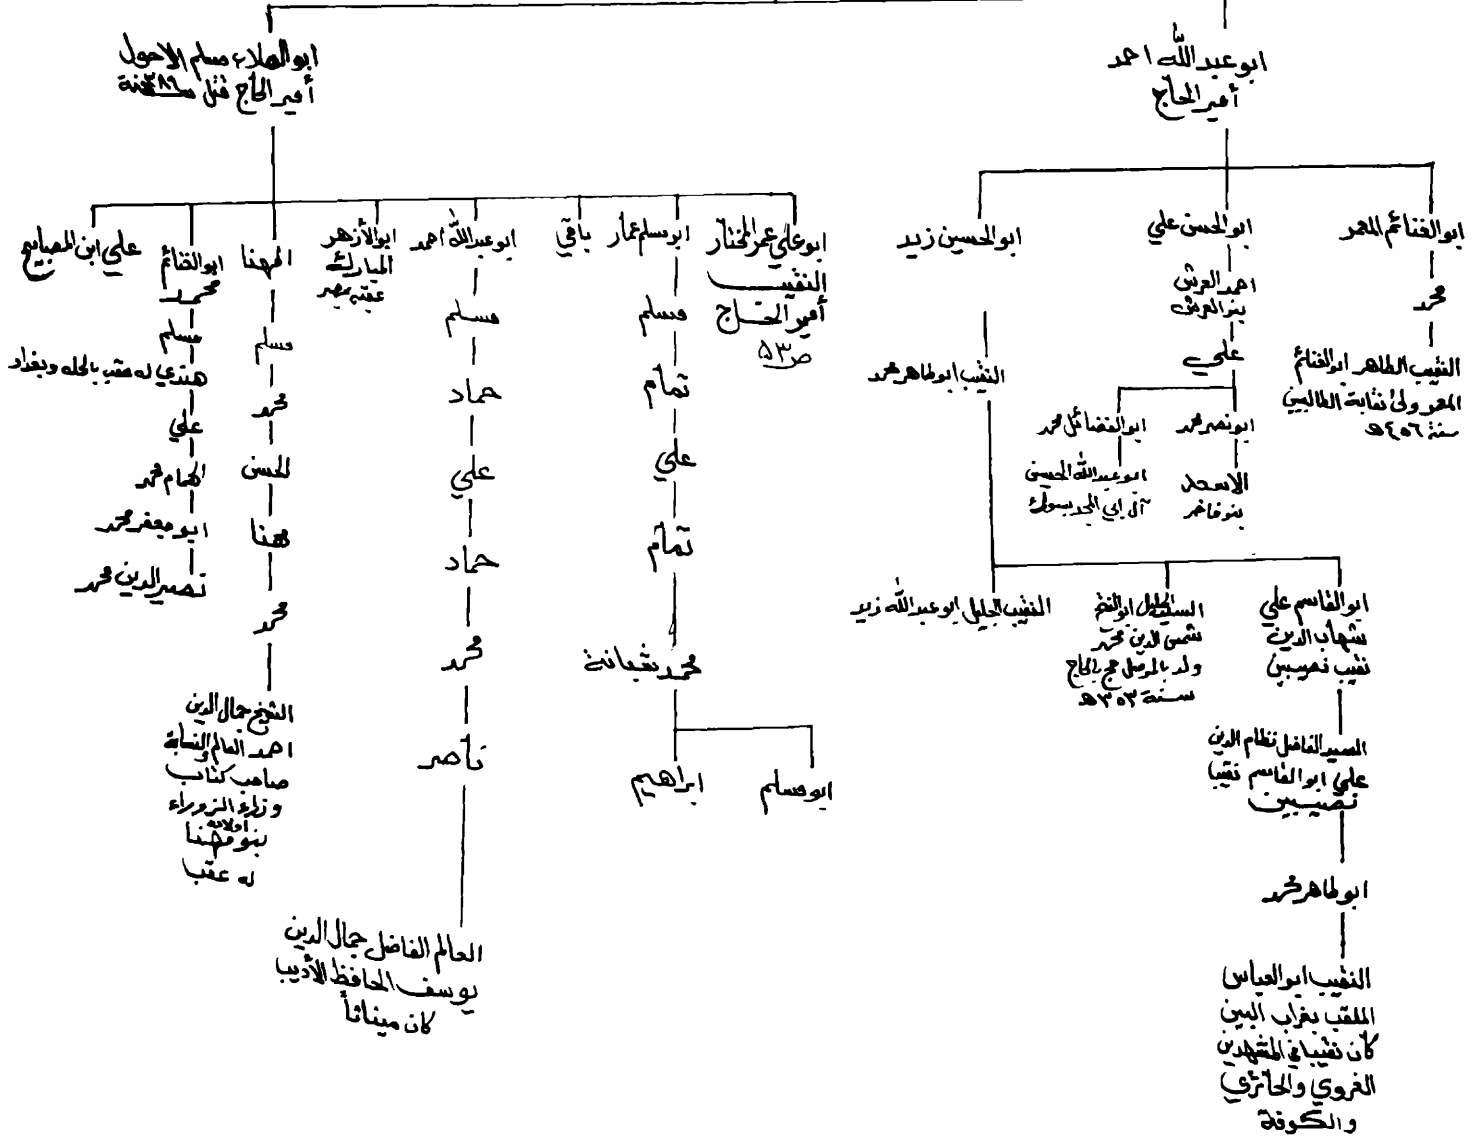 ابو عبد الله احمد
أمير الحاج
ابو الغنائم المعمر
محمد
النقيب الطاهر ابو الغنائم
المعمر ولي نقابة الطالبيين
سنة ٤٥٦ هـ
ابو الحسن علي
احمد العرش
بنو العرش
علي
ابو نصر محمد
الاسعد
بنو فاخر
ابو الفضائل محمد
ابو عبد الله الحسين
آل ابي المجد بسوراء
ابو الحسين زيد
النقيب ابو طاهر محمد
ابو القاسم علي
شهاب الدين
نقيب نصيبين
السيد الفاضل نظام الدين
علي ابو القاسم نقيبا
نصيبين
ابو طاهر محمد
النقيب ابو العباس
الملقب بغراب البين
كان نقيبا في المشهدين
الغروي والحائري
والكوفة
السيد الجليل ابو الفتح
شمس الدين محمد
ولد بالموصل حج بالحاج
سنة ٣٥٣ هـ
النقيب الجليل ابو عبد الله زيد
ابو العلاء مسلم الاحول
أمير الحاج قتل سنة ٣٨٩
ابو علي عمر المختار
النقيب
أمير الحاج
ص ٥٣
ابو مسلم عمار
مسلم
تمام
علي
تمام
محمد شبانة
ابو مسلم
ابراهيم
باقي
ابو عبد الله احمد
مسلم
حماد
علي
حماد
محمد
ناصر
العالم الفاضل جمال الدين
يوسف الحافظ الأديب
كان ميناثاً
ابو الأزهر
المبارك
عقبه بمصر
المهنا
مسلم
محمد
الحسن
مهنا
محمد
الشيخ جمال الدين
احمد العالم والنسابة
صاحب كتاب
وزراء الزوراء
اولاده
بنو مهنا
له عقب
ابو الغنائم
محمد
مسلم
هندي له عقب بالحله وبغداد
علي
الهمام محمد
ابو جعفر محمد
نصير الدين محمد
علي ابن المصابيح